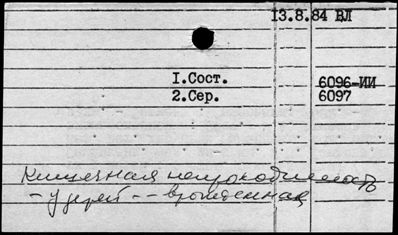 13.8.84 ВЛ
1.Сост. 6096-ИИ
2.Сер. 6097
Кишечная непроходимость
- у детей -- врожденная